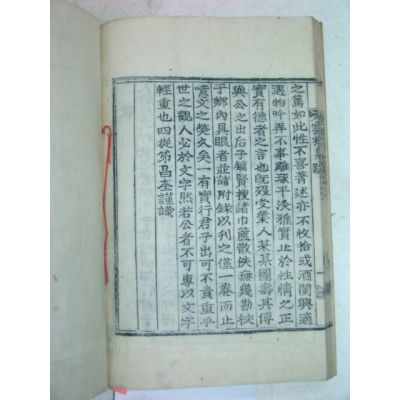 之篤如此性不喜著述亦不收拾或酒闌興適
遇物吟弄不事雕琢平淡雅實止於性情之正
實有德者之言也旣歿受業人某某圖壽其傳
與公之出后子鎭賢搜諸巾篋散佚無幾勘校
于鄕內具眼者並諸附錄以刋之僅一卷而止
噫文之獘久矣一有實行君子出可不貴重乎
世之觀人必於文字然若公者不可專以文字
輕重也四從弟昌奎謹識